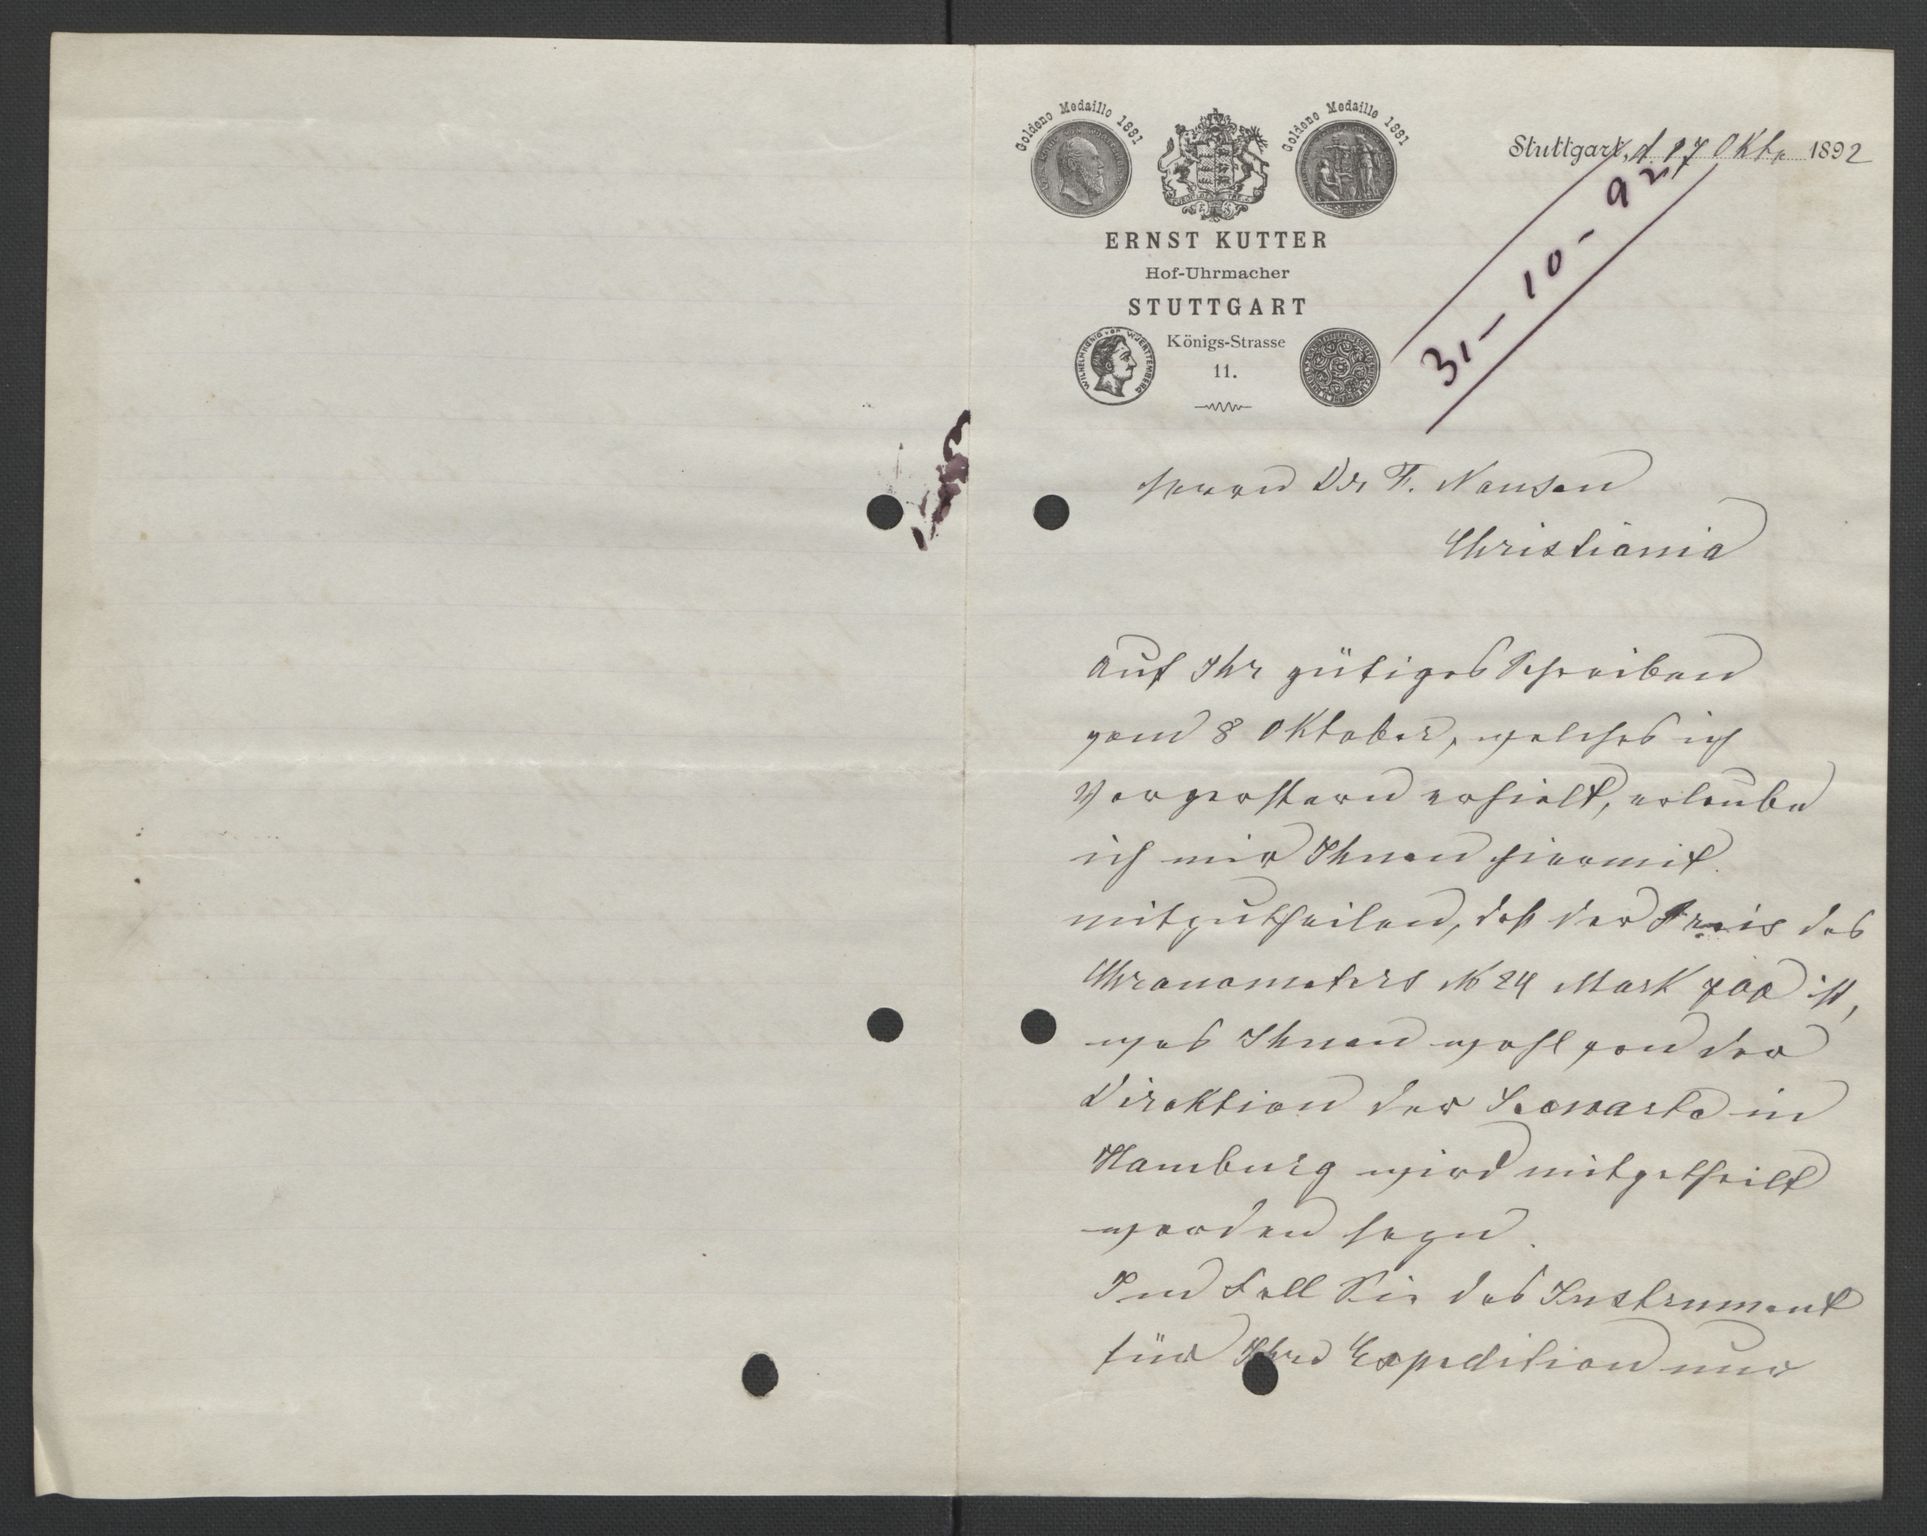 Goldene Medaille 1881
Goldene Medaille 1881
ERNST KUTTER
Hof-Uhrmacher
STUTTGART
WILHELM KOENIG VON WUERTTEMBERG
Königs-Strasse
11.
Stuttgart, d. 17 Oktr 1892
31-10-92
Herrn Dr F. Nansen
Christiania
Auf Ihr gütiges Schreiben
vom 8 Oktober, welches ich
vorgestern erhielt, erlaube
ich mir Ihnen hiermit
mitzutheilen, daß der Preis des
Chronometers No 24 Mark 700 ist,
was Ihnen wohl von der
Direktion der Seewarte in
Hamburg wird mitgetheilt
worden seyn.
Im Fall Sie das Instrument
für Ihre Expedition nur